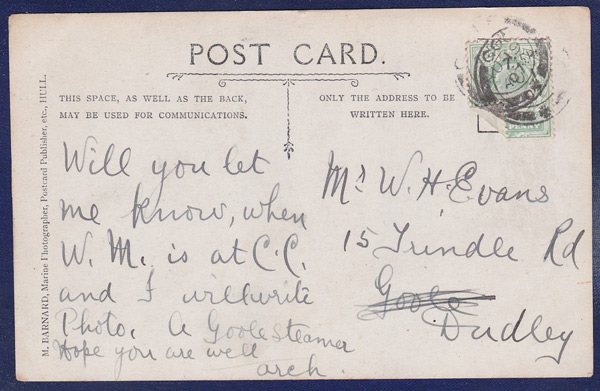 POST CARD.
THIS SPACE, AS WELL AS THE BACK,
MAY BE USED FOR COMMUNICATIONS.
ONLY THE ADDRESS TO BE
WRITTEN HERE.
M. BARNARD, Marine Photographer, Postcard Publisher, etc., HULL.
Will you let
me know, when
W. M. is at C.C.
and I will write
Photo. A Goole Steamer
Hope you are well
arch.
Mr W. H. Evans
15 Trindle Rd
Goole
Dudley
GOOLE